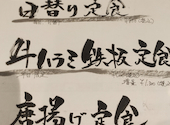 日替り定食
牛ハラミ鉄板定食
唐揚げ定食